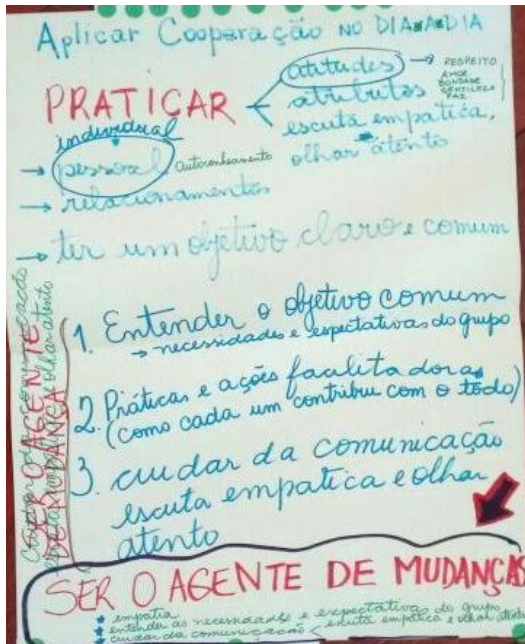 Aplicar Cooperação NO DIA A DIA
PRATICAR
atitudes → RESPEITO
AMOR
BONDADE
GENTILEZA
PAZ
atributos
escuta empatica,
olhar atento
individual
→ pessoal autoconhecimento
→ relacionamentos
→ ter um objetivo claro e comum
1. Entender o objetivo comum
→ necessidades e expectativas do grupo
2. Práticas e ações facilitadoras
(como cada um contribui com o todo)
3. cuidar da comunicação
escuta empatica e olhar
atento
O AGENTE
DE MUDANÇA
SER O AGENTE DE MUDANÇAS
★ empatia
★ entender as necessidades e expectativas do grupo
★ cuidar da comunicação < escuta empática e olhar atento